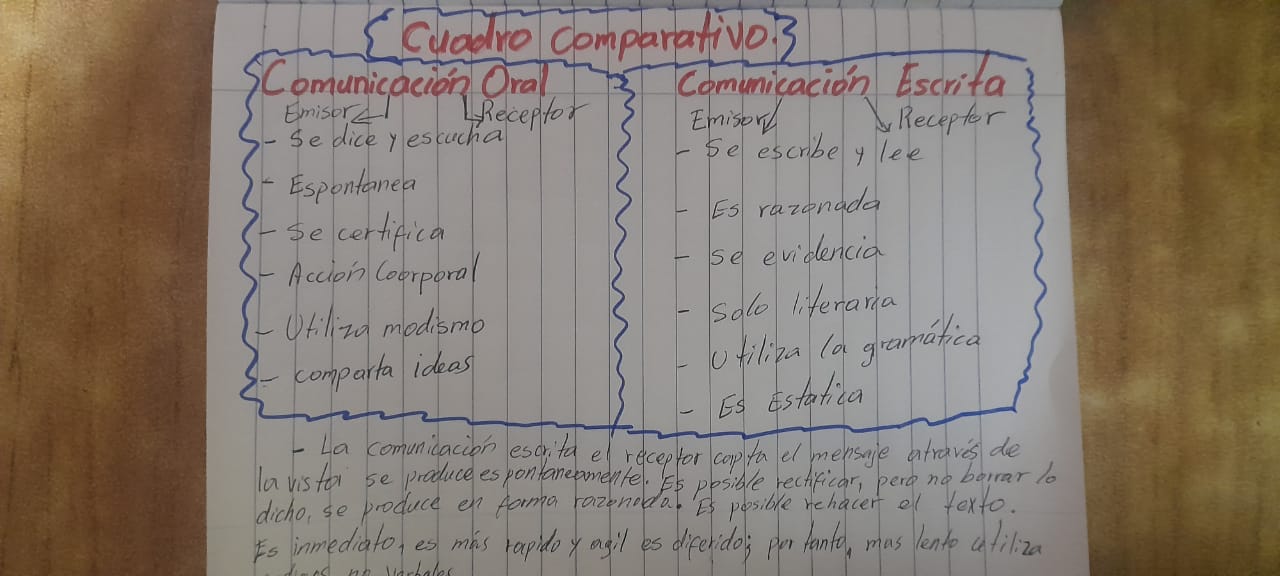 Cuadro Comparativo.
Comunicación Oral
Emisor Receptor
- Se dice y escucha
- Espontanea
- Se certifica
- Acción Coorporal
- Utiliza modismo
- comparta ideas
Comunicación Escrita
Emisor Receptor
- Se escribe y lee
- Es razonada
- Se evidencia
- Solo literaria
- Utiliza la gramática
- Es Estatica
- La comunicación escrita el receptor capta el mensaje através de
la vista se produce espontaneamente. Es posible rectificar, pero no borrar lo
dicho, se produce en forma razonada. Es posible rehacer el texto.
Es inmediato, es más rapido y agil es diferido; por tanto, mas lento utiliza
no verbales